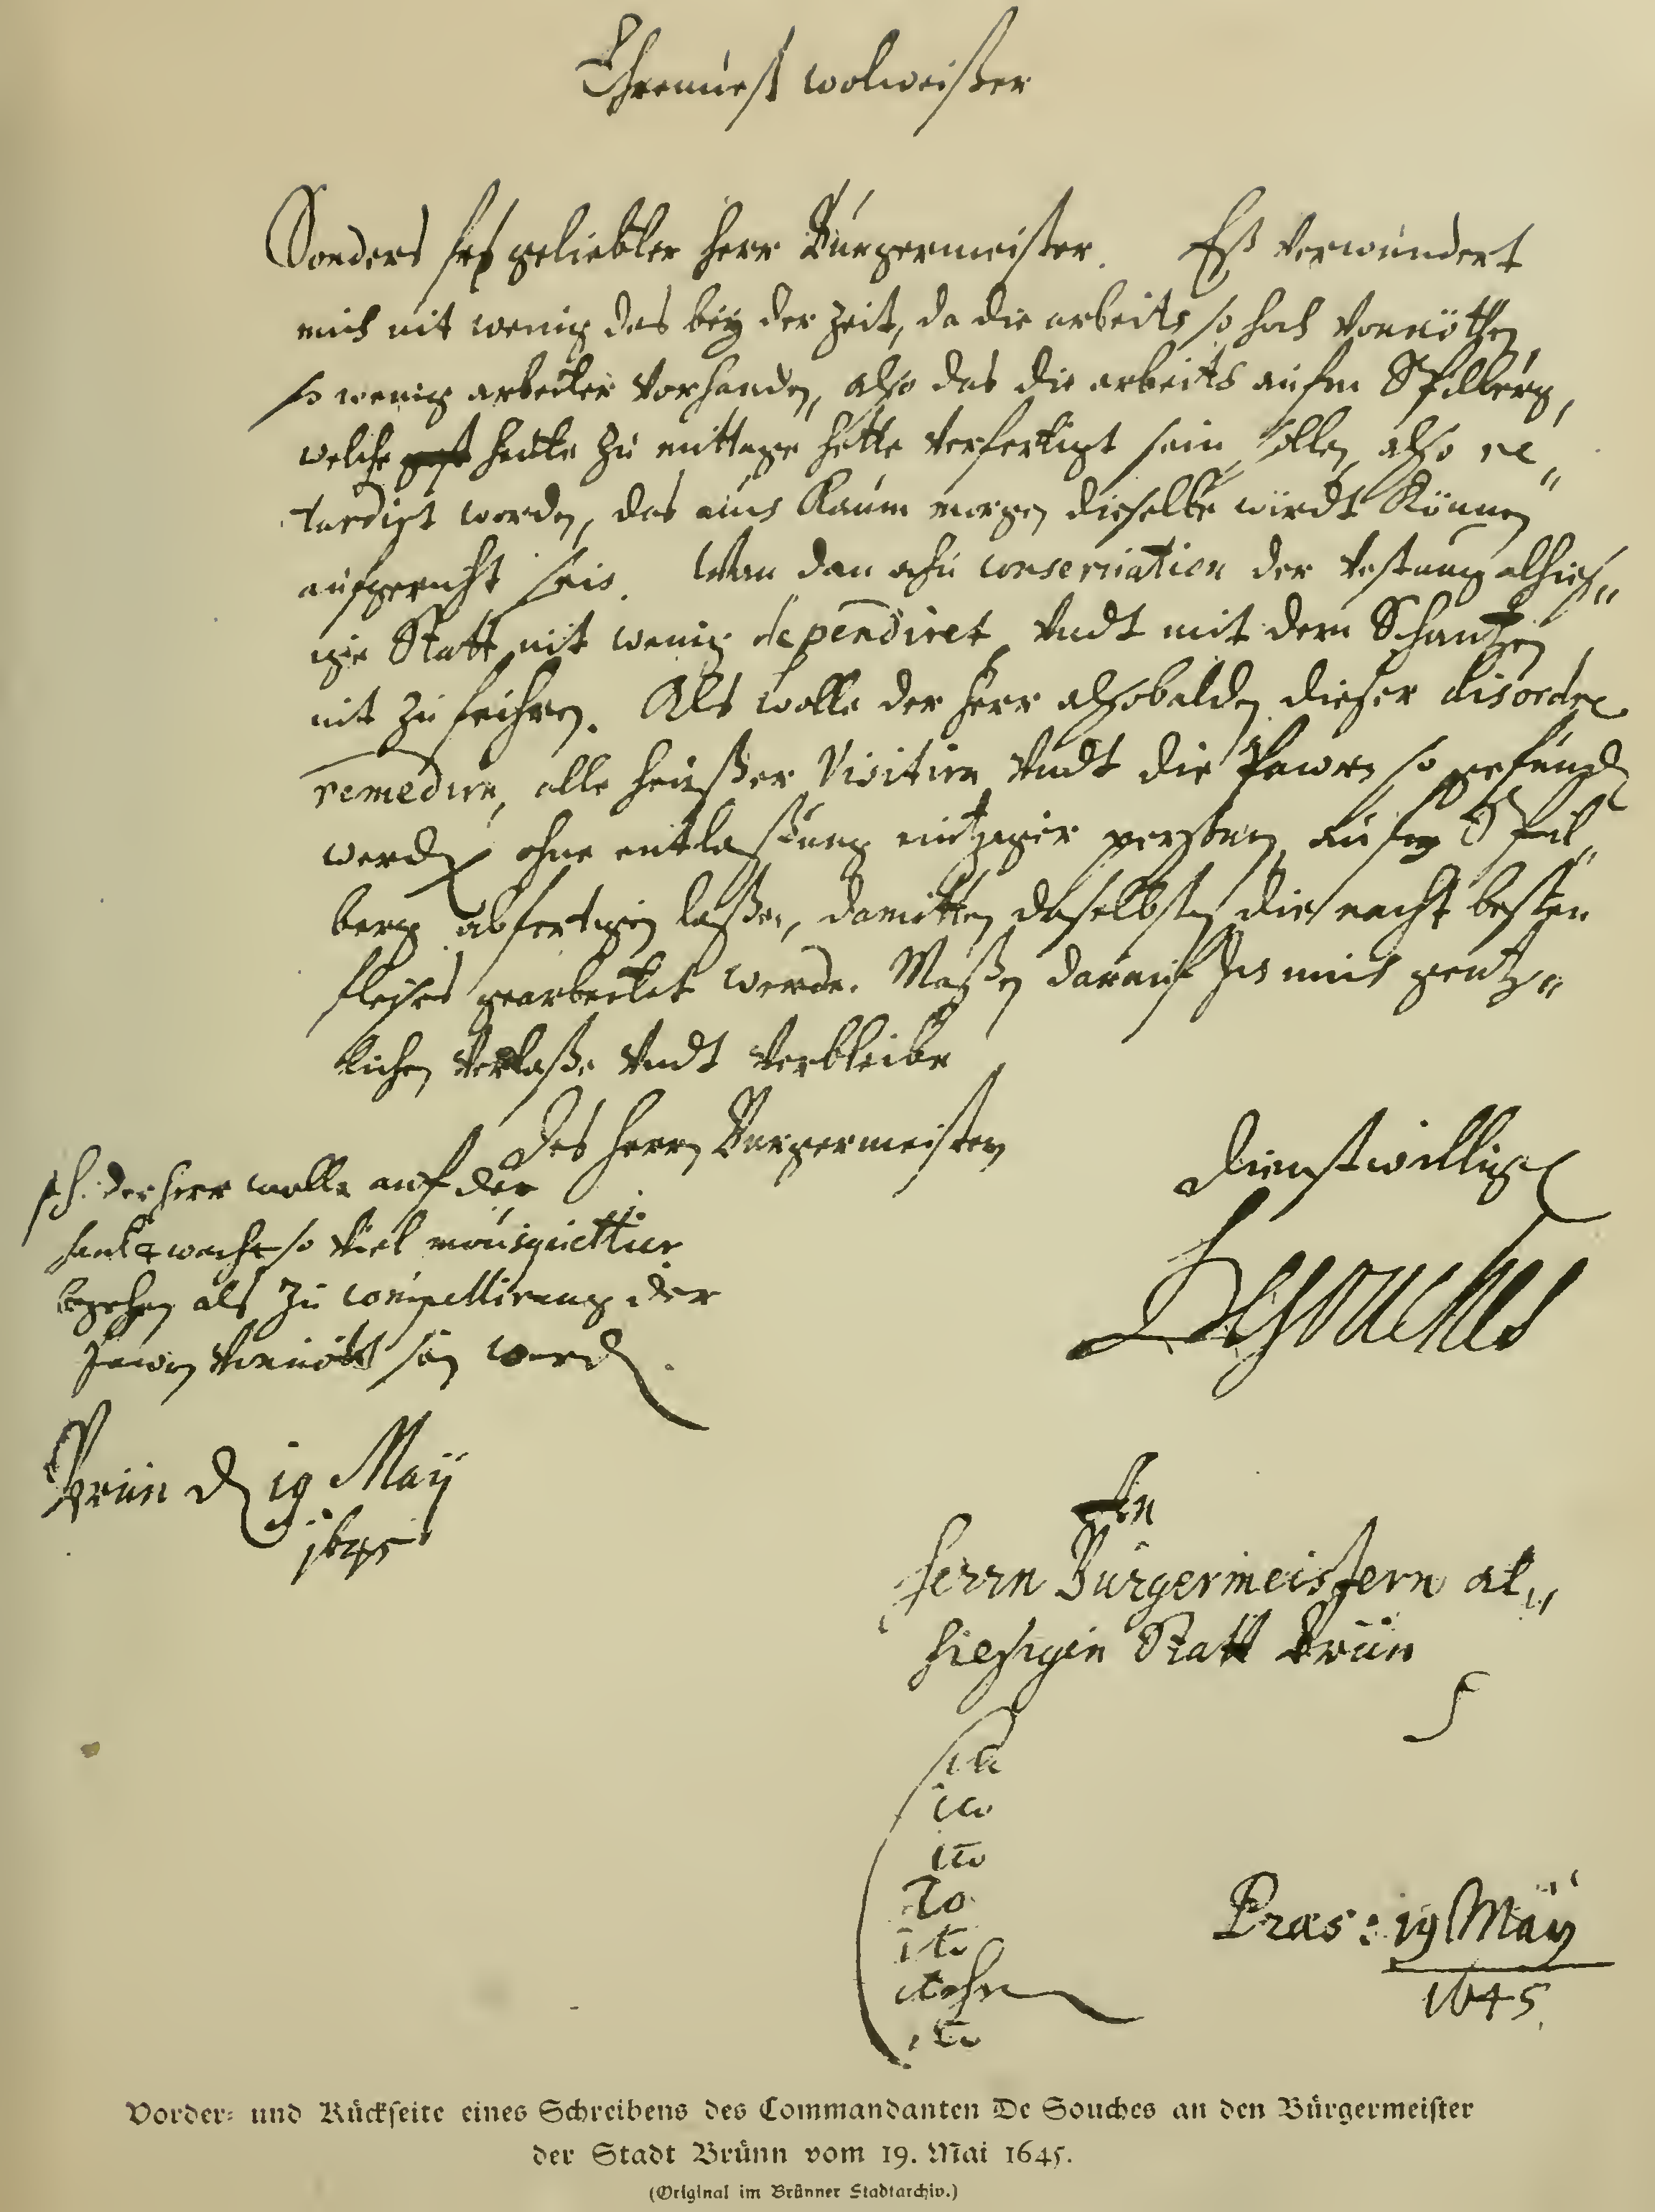 Ehrnuest wolweißer
Sonders geliebter Herr Burgermeister. Eß verwundert
mich nit wenig das bey der Zeit, da die arbeits so hoch vonnöthen
so wenig arbeiter vorhanden, also das die arbeits aufm Spilberg,
welche heute zu mittage hette verfertigt sein sollen also re„
tardirt worden, das auch kaum morgen dieselbe wirdt können
aufgericht sein. Wan dan conseruation der Vestung alhies„
ige Statt nit wenig dependiret vndt mit dem Schantzen
nit zu feihren. Als wolle der Herr alsobalden dieser disordre
remediren, alle heüßer visitirn vndt die Pawrn so gefunden
werden ohne entlaßung eintziger person aufm Spil„
berg abfertigen laßen, damitten daselbsten die nacht besten
fleißes gearbeitet werde. Maßen darauf Ich mich gentz„
lichen verlaße vndt verbleibe
Des Herrn Burgermeistern
dienstwilliger
Desouches
der Herr wolle auf der
so viel mousquettier
begehren als zu compellirung der
Pawrn vonnöten sein werden.
Brün den 19 May
1645
An
Herrn Bürgermeistern al„
hiesigen Statt Brün
Præs: 19 May
1645.
Vorder- und Rückseite eines Schreibens des Commandanten De Souches an den Bürgermeister
der Stadt Brünn vom 19. Mai 1645.
(Original im Brünner Stadtarchiv.)